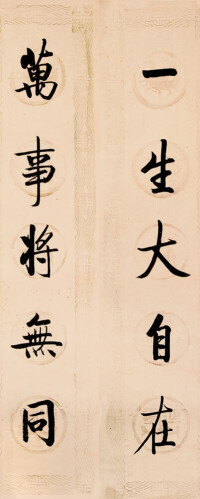 一生大自在
萬事将無同